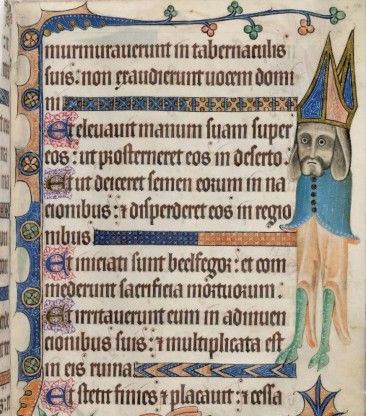 murmurauerunt in tabernaculis
suis: non exaudierunt uocem domi
ni
Et eleuauit manum suam super
eos: ut prosterneret eos in deserto.
Et ut deiceret semen eorum in na
cionibus: ⁊ disperderet eos in regio
nibus
Et iniciati sunt beelfegor: et com
mederunt sacrificia mortuorum.
Et irritauerunt eum in adinuen
cionibus suis: ⁊ multiplicata est
in eis ruina
Et stetit finees ⁊ placauit: ⁊ cessa